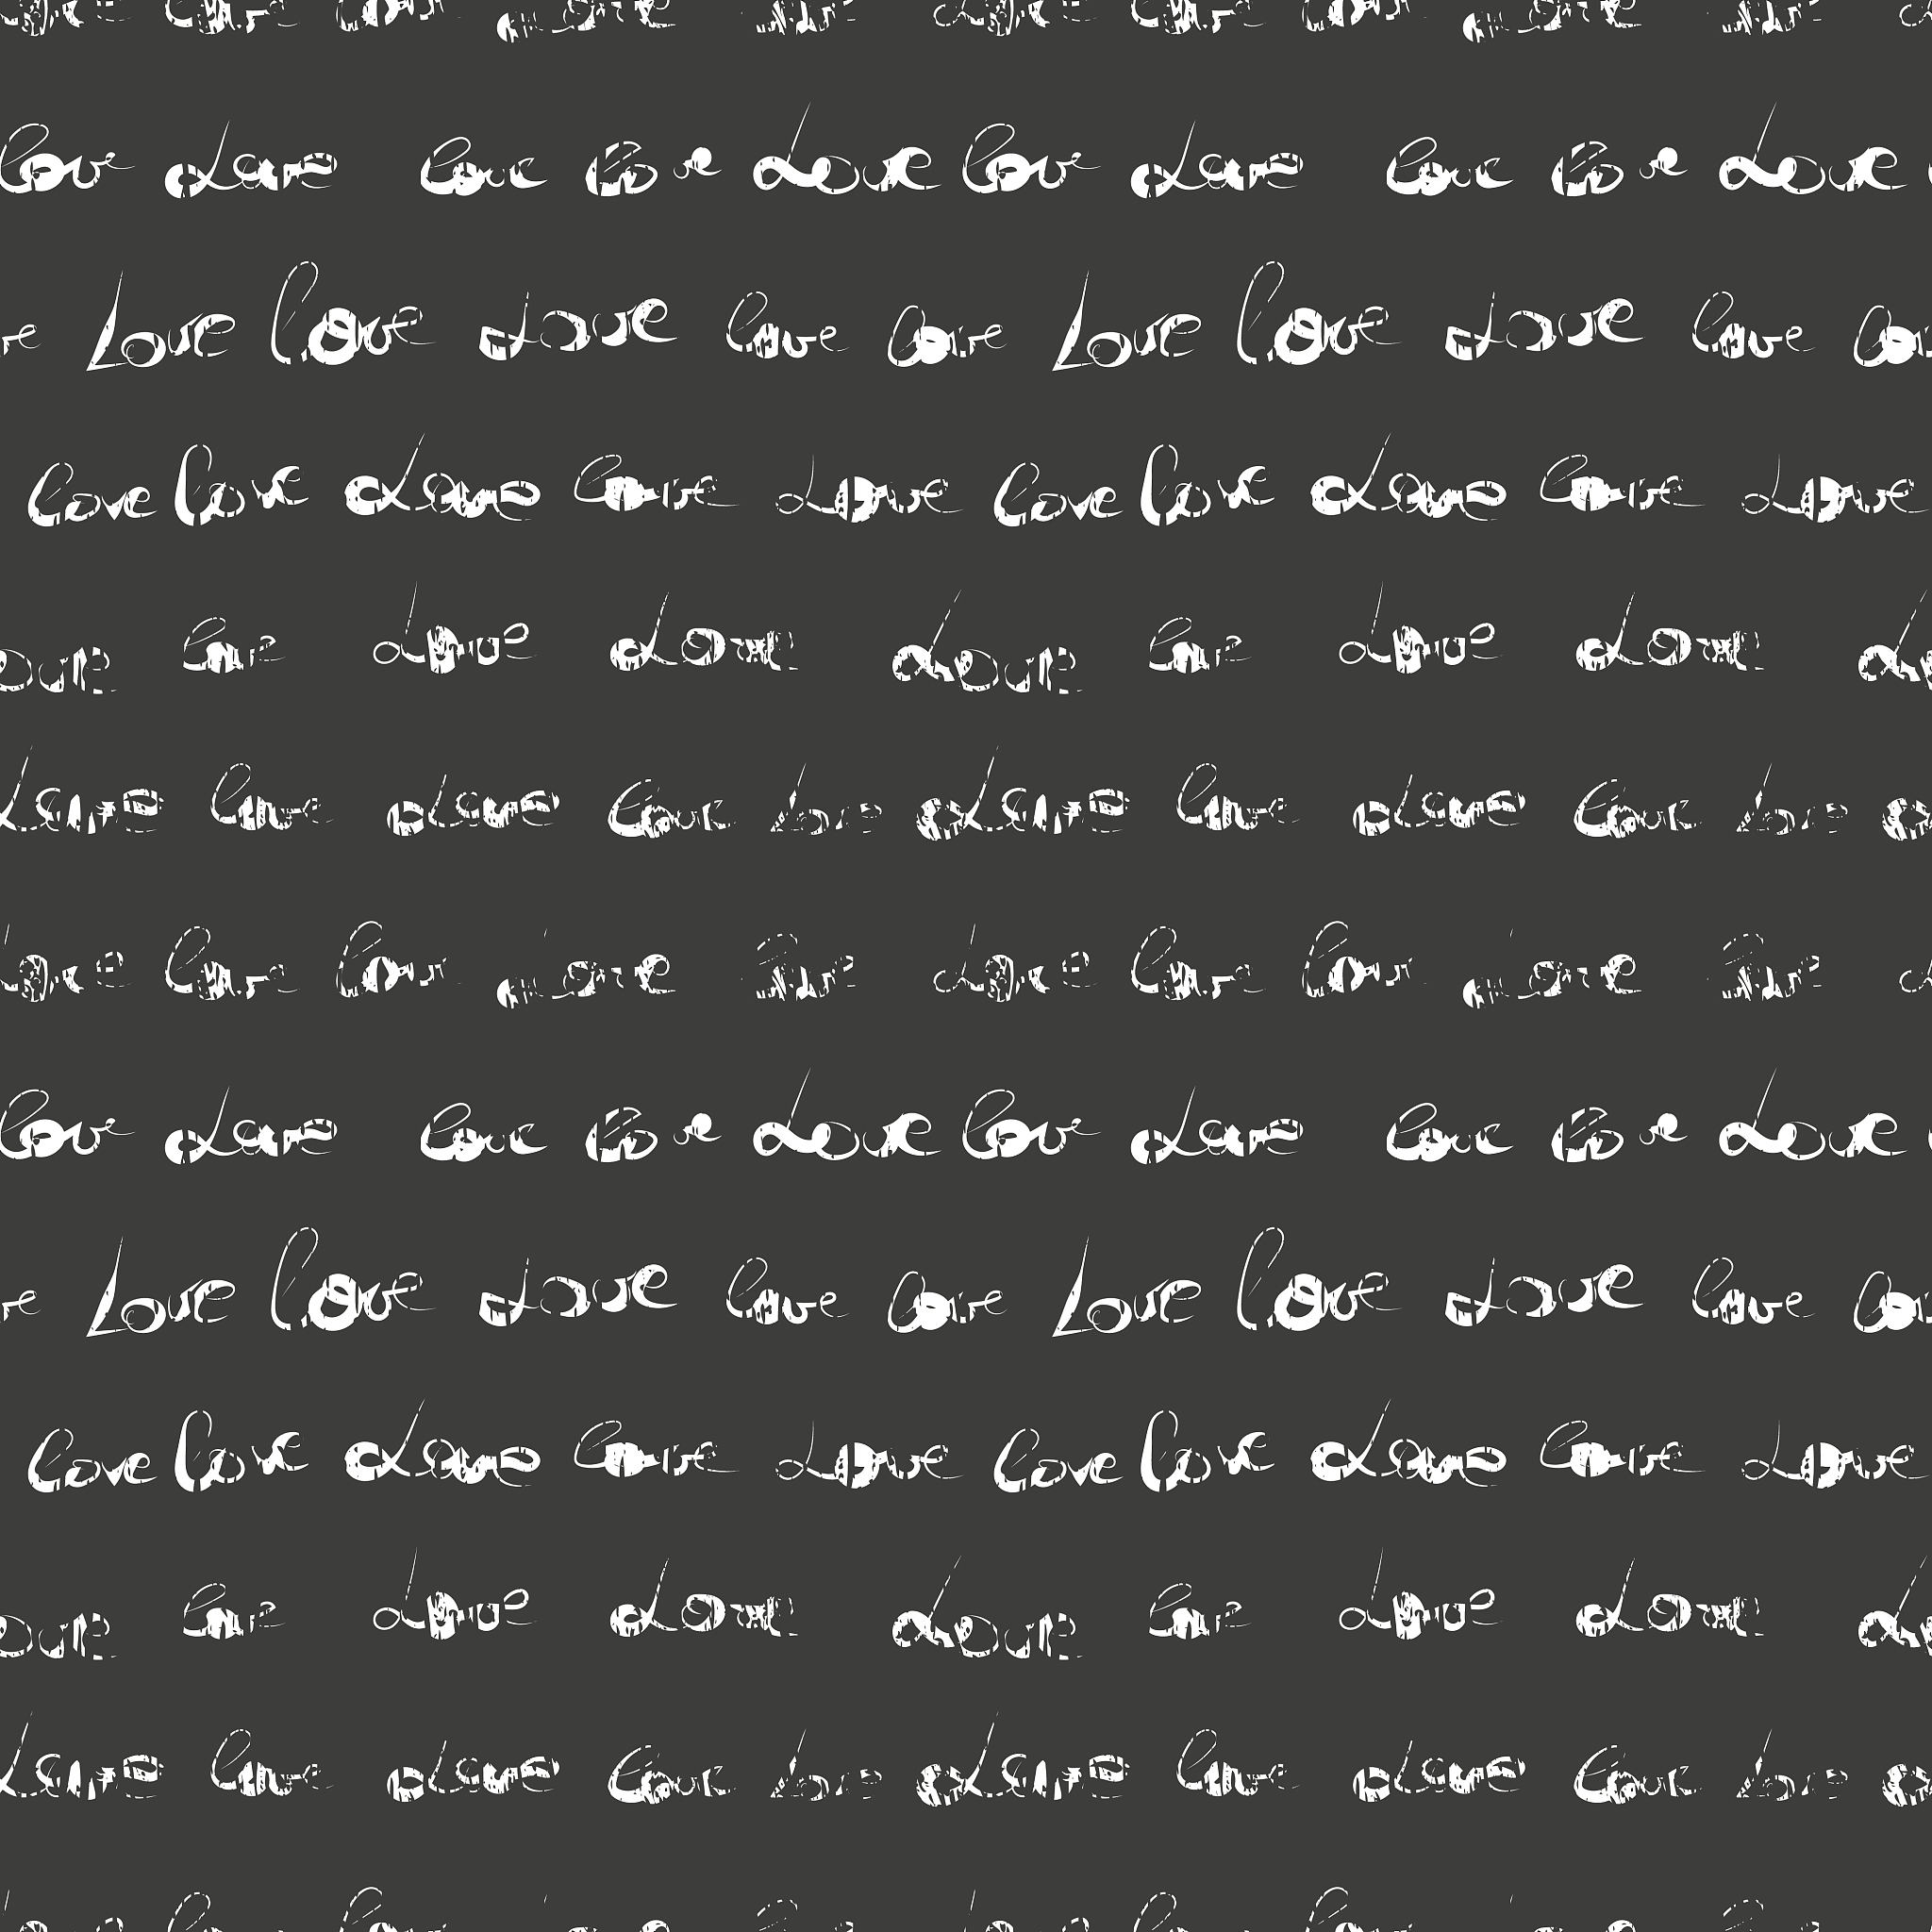 love love love love Love love love love love Love
Love love love love love Love love love love
love love love love Love love love love love Love
love Love Love Love love Love Love
Love love love love love Love love love love love
love love love love love love love love
love love love love Love love love love love Love
Love love love love love Love love love love
love love love love Love love love love love Love
love Love Love Love love Love Love
Love love love love love Love love love love love